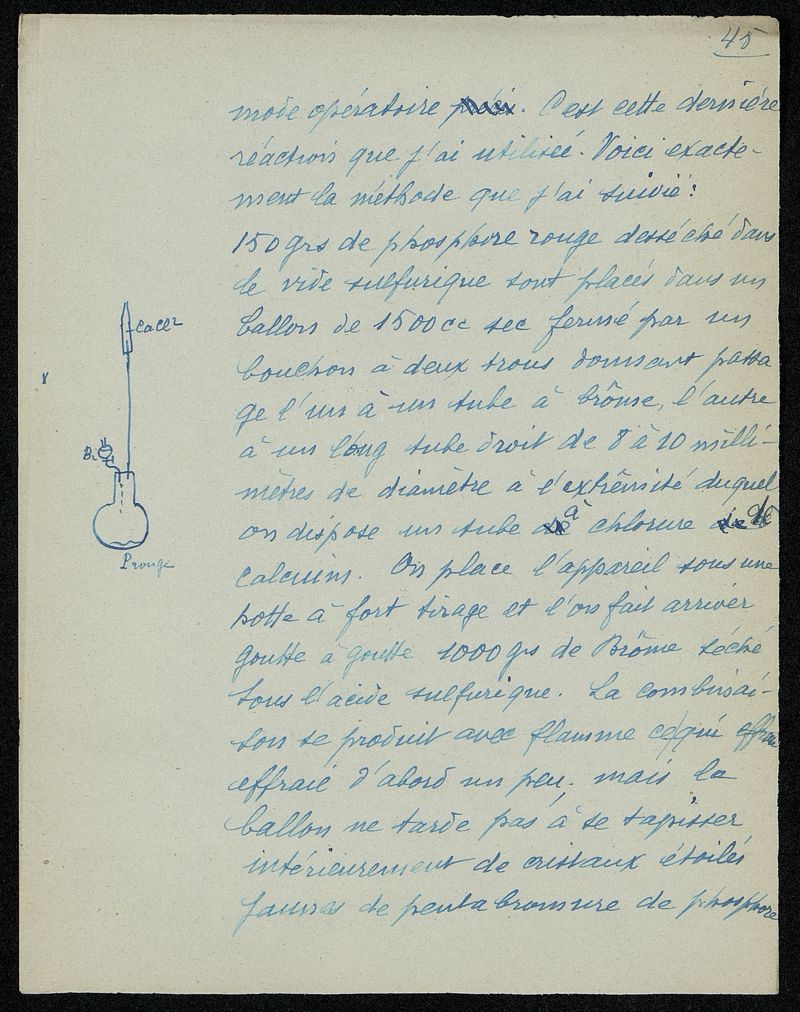 45
mode opératoire précis. C'est cette dernière
réaction que j'ai utilisée. Voici exacte-
ment la méthode que j'ai suivie:
150 grs de phosphore rouge desséché dans
le vide sulfurique sont placés dans un
ballon de 1500cc sec fermé par un
bouchon à deux trous donnant passa
ge l'un à un tube à brôme, l'autre
à un long tube droit de 8 à 10 milli-
mètres de diamètre à l'extrêmité duquel
on dispose un tube à chlorure de
calcium. On place l'appareil sous une
hotte à fort tirage et l'on fait arriver
goutte à goutte 1000 grs de Brôme séché
sous l'acide sulfurique. La combinai-
son se produit avec flamme ce qui
effraie d'abord un peu, mais le
ballon ne tarde pas à se tapisser
intérieurement de cristaux étoilés
jaunes de pentabromure de phosphore
CaCl2
Br
P rouge